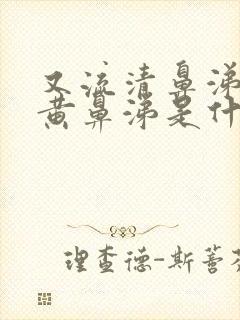 又流清鼻涕
黄鼻涕是什
理查德-斯蒈